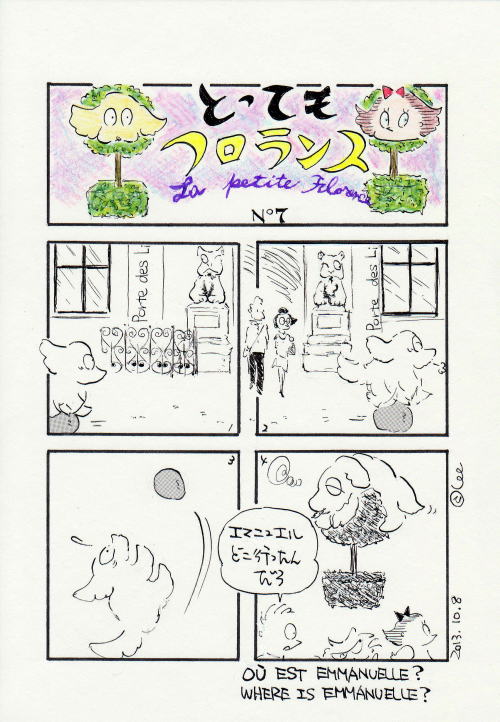 とっても
フロランス
La petite Florence
N°7
Porte des Li
Porte des Li
1
2
3
4
エマニュエル
どこ行ったん
だろ
©Lee
2013.10.8
OÙ EST EMMANUELLE?
WHERE IS EMMANUELLE?